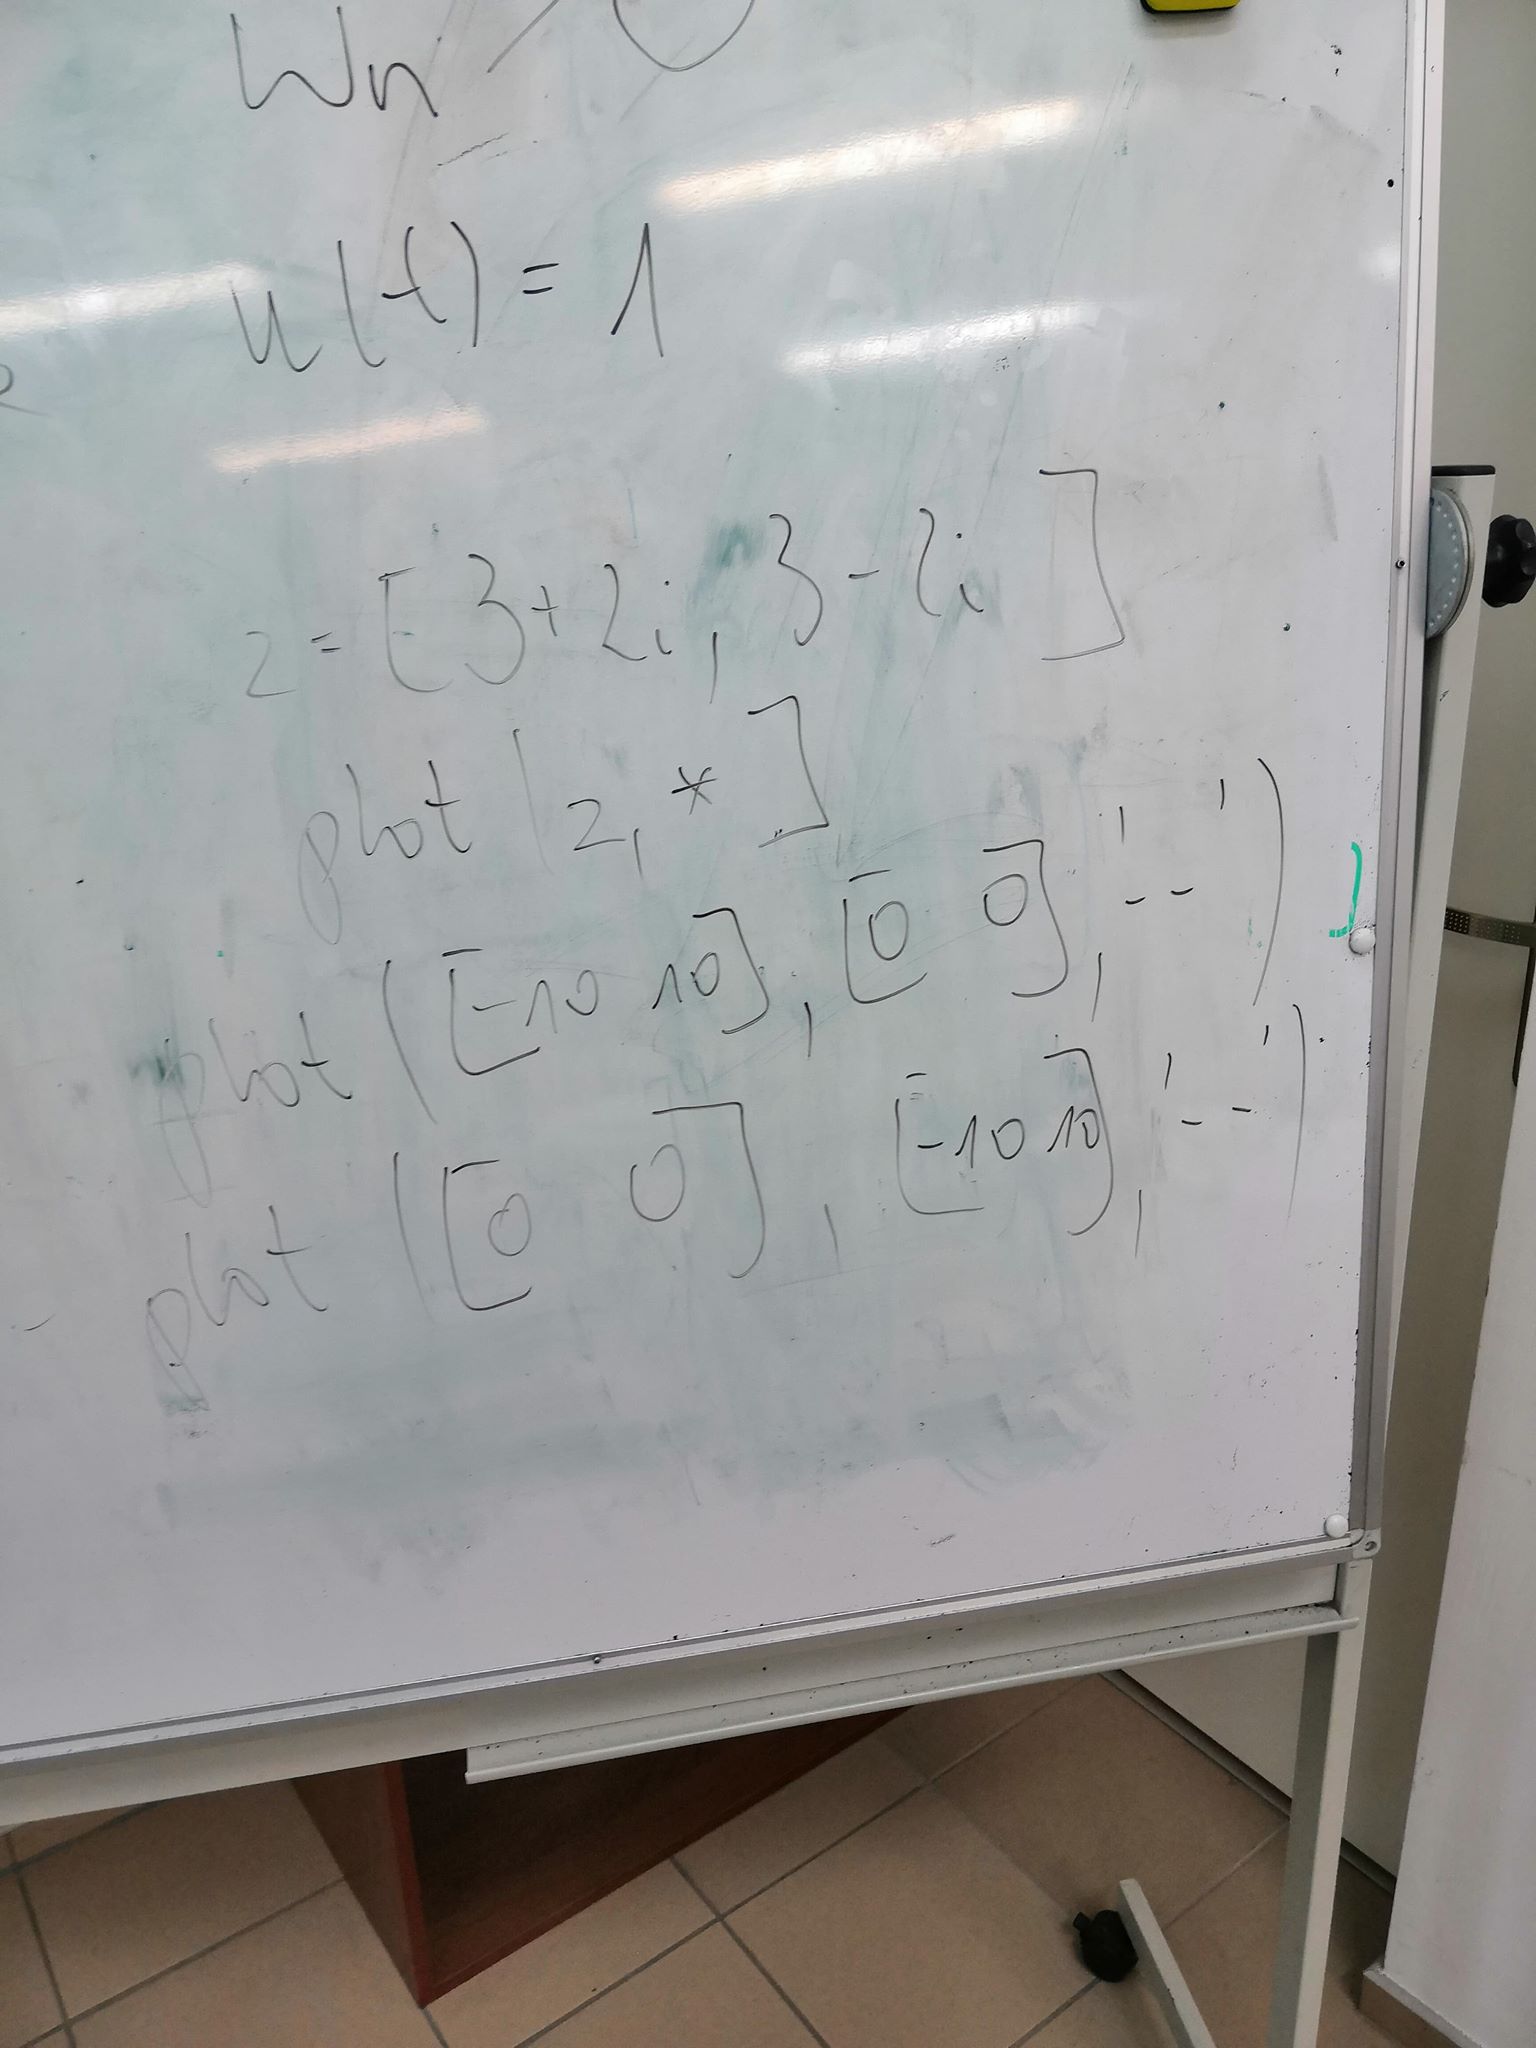 Wn
u(t) = 1
z = [3+2i, 3-2i]
plot (z, *]
plot ([-10 10], [0 0], '--')
plot ([0 0], [-10 10], '--')